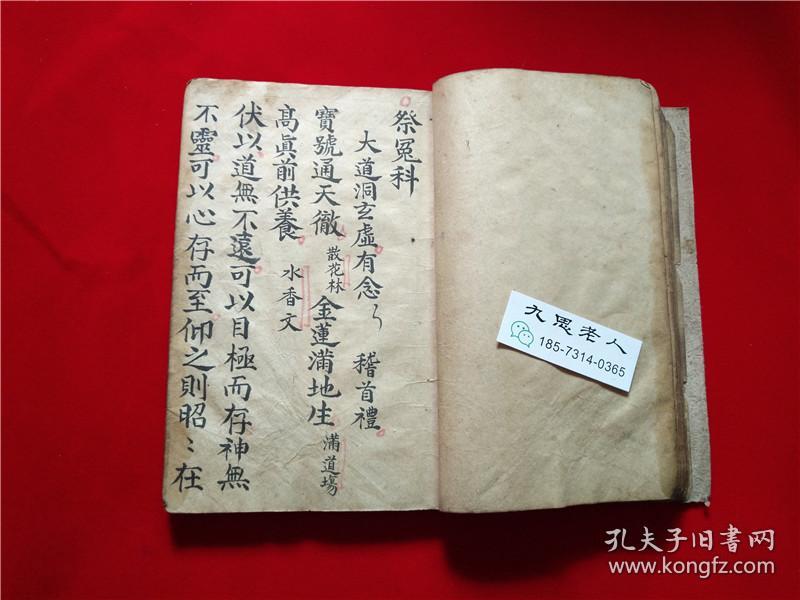 祭冤科
大道洞玄虛有念々 稽首禮
寶號通天徹 散花林 金蓮滿地生 滿道場
高眞前供養 水香文
伏以道無不遠可以目極而存神無
不靈可以心存而至仰之則昭〻在
九思老人
185-7314-0365
孔夫子旧书网
www.kongfz.com